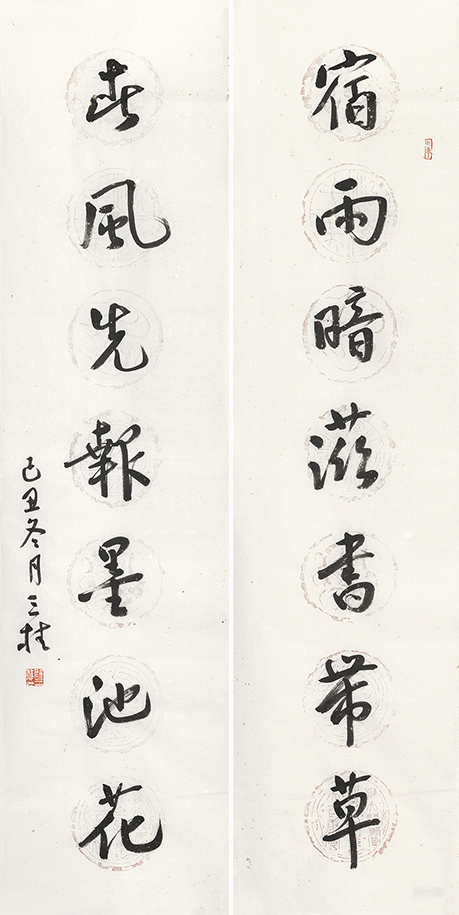 宿雨暗滋書帶草
春風先報墨池花
己丑冬月三桂